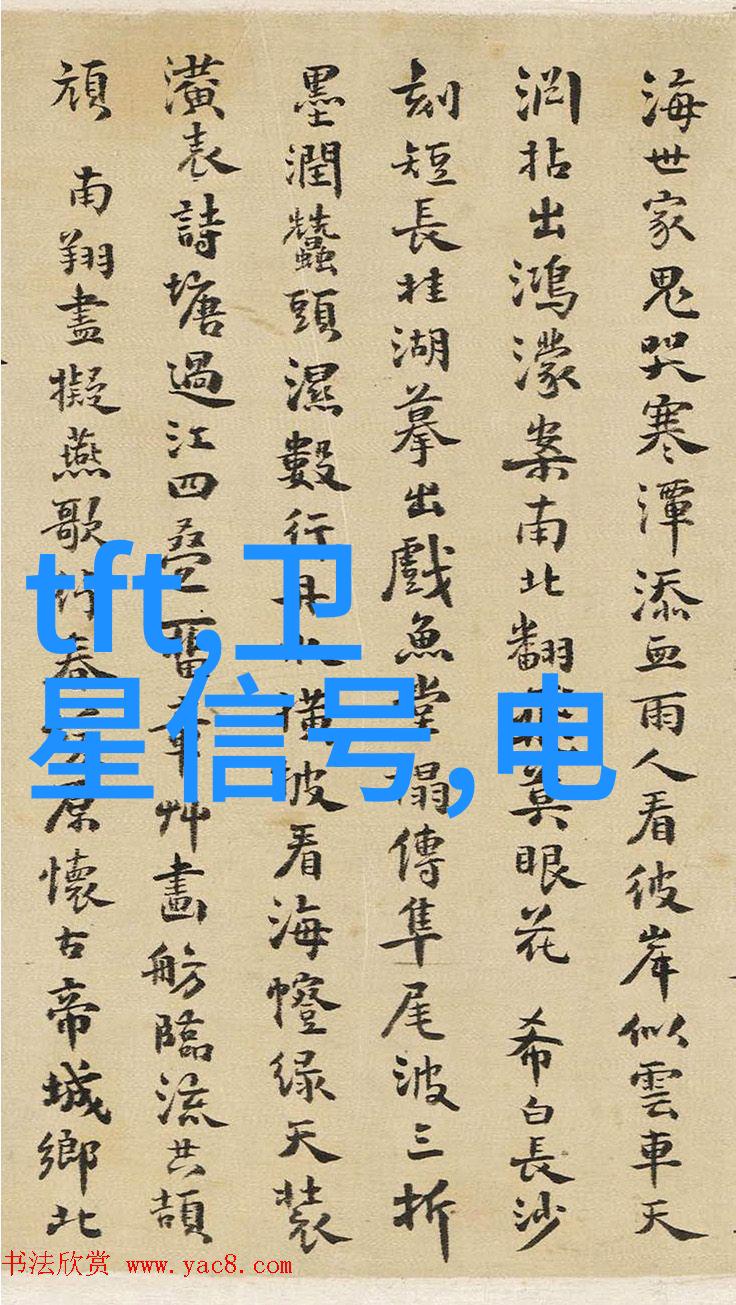 海世家鬼哭寒潭添血雨人看彼岸似雲車天
拈出鴻濛案南北翻莫眼花 希白長沙
刻短長桂湖摹出戲魚堂搨傳隼尾波三折
墨潤蠶頭濕數行橫披看海幢綠天裝
潢表詩塘過江四疊舊章艸畫舫臨流共頡
頏 南翔盡擬燕歌行春原懷古帝城鄉北
tft,卫
星信号,电
书法欣赏 www.yac8.com